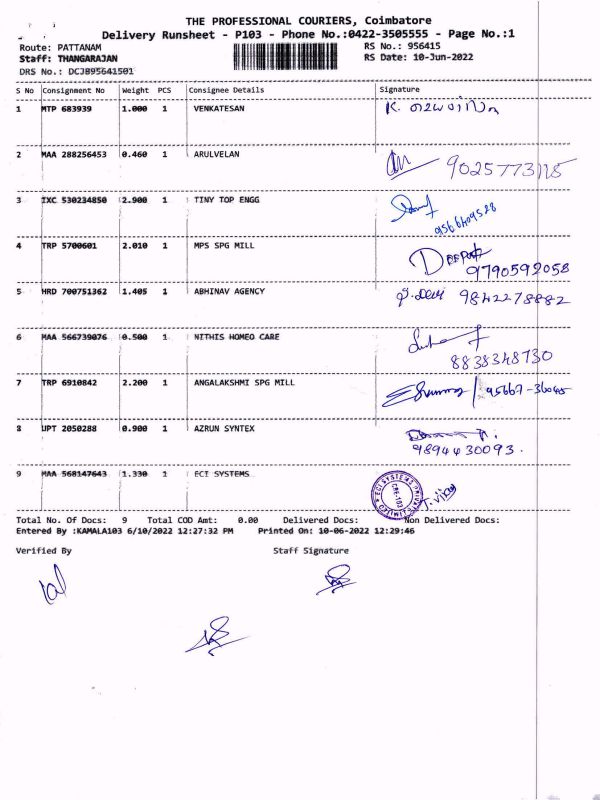 THE PROFESSIONAL COURIERS, Coimbatore
Delivery Runsheet - P103 - Phone No.:0422-3505555 - Page No.:1
Route: PATTANAM RS No.: 956415
Staff: THANGARAJAN RS Date: 10-Jun-2022
DRS No.: DCJB95641501
S No Consignment No Weight PCS Consignee Details Signature
1 MTP 683939 1.000 1 VENKATESAN
2 MAA 288256453 0.460 1 ARULVELAN
3 IXC 530234850 2.900 1 TINY TOP ENGG
9566409528
4 TRP 5700601 2.010 1 MPS SPG MILL
9790592058
5 HRD 700751362 1.405 1 ABHINAV AGENCY P. Devi 9842278882
6 MAA 566739076 0.500 1 NITHIS HOMEO CARE
8838348730
7 TRP 6910842 2.200 1 ANGALAKSHMI SPG MILL
8 UPT 2050288 0.900 1 AZRUN SYNTEX
9894430093.
9 MAA 568147643 1.330 1 ECI SYSTEMS T. Vijay
Total No. Of Docs: 9 Total COD Amt: 0.00 Delivered Docs: Non Delivered Docs:
Entered By :KAMALA103 6/10/2022 12:27:32 PM Printed On: 10-06-2022 12:29:46
Verified By Staff Signature